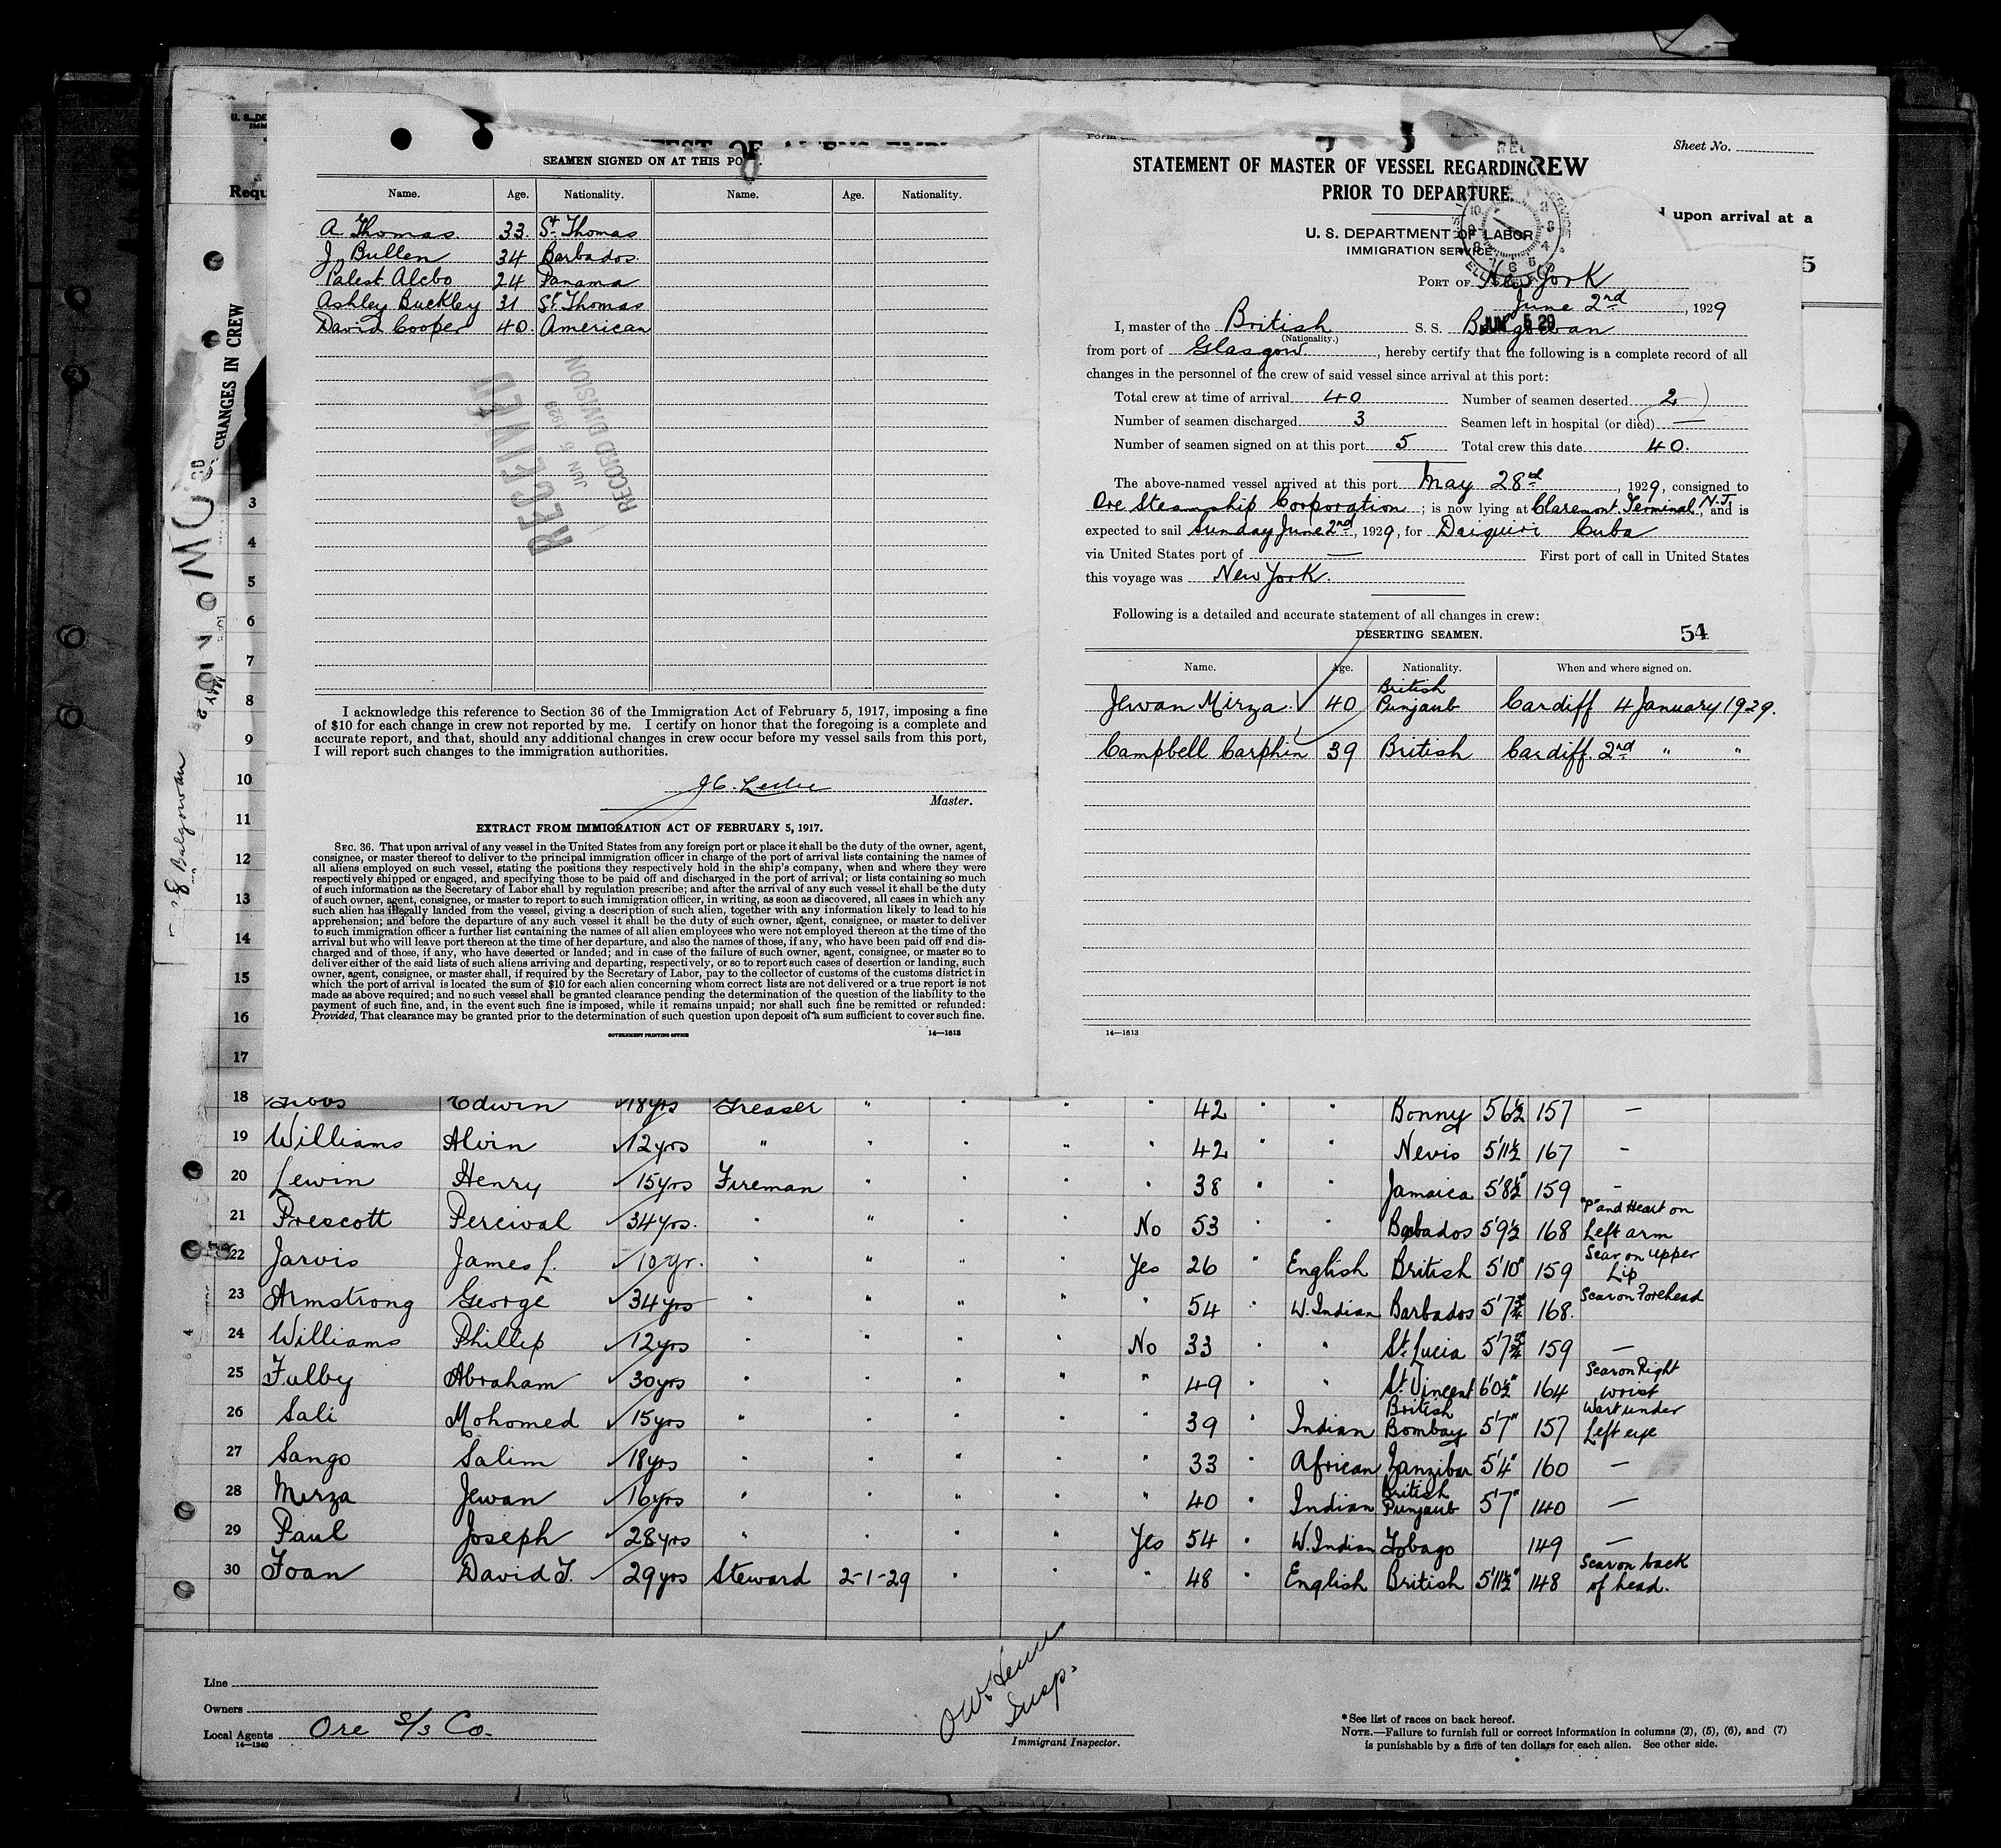 SEAMEN SIGNED ON AT THIS PO
Name. Age. Nationality. Name. Age. Nationality.
A Thomas. 33. St. Thomas
J. Bullen 34 Barbados.
Palest Alcbo 24 Panama
Ashley Buckley 31 St. Thomas
David Cooper 40. American
RECEIVED
JUN 5 1929
RECORD DIVISION
I acknowledge this reference to Section 36 of the Immigration Act of February 5, 1917, imposing a fine
of $10 for each change in crew not reported by me. I certify on honor that the foregoing is a complete and
accurate report, and that, should any additional changes in crew occur before my vessel sails from this port,
I will report such changes to the immigration authorities.
J.C. Leslie
Master.
EXTRACT FROM IMMIGRATION ACT OF FEBRUARY 5, 1917.
SEC. 36. That upon arrival of any vessel in the United States from any foreign port or place it shall be the duty of the owner, agent,
consignee, or master thereof to deliver to the principal immigration officer in charge of the port of arrival lists containing the names of
all aliens employed on such vessel, stating the positions they respectively hold in the ship's company, when and where they were
respectively shipped or engaged, and specifying those to be paid off and discharged in the port of arrival; or lists containing so much
of such information as the Secretary of Labor shall by regulation prescribe; and after the arrival of any such vessel it shall be the duty
of such owner, agent, consignee, or master to report to such immigration officer, in writing, as soon as discovered, all cases in which any
such alien has illegally landed from the vessel, giving a description of such alien, together with any information likely to lead to his
apprehension; and before the departure of any such vessel it shall be the duty of such owner, agent, consignee, or master to deliver
to such immigration officer a further list containing the names of all alien employees who were not employed thereon at the time of the
arrival but who will leave port thereon at the time of her departure, and also the names of those, if any, who have been paid off and dis-
charged and of those, if any, who have deserted or landed; and in case of the failure of such owner, agent, consignee, or master so to
deliver either of the said lists of such aliens arriving and departing, respectively, or so to report such cases of desertion or landing, such
owner, agent, consignee, or master shall, if required by the Secretary of Labor, pay to the collector of customs of the customs district in
which the port of arrival is located the sum of $10 for each alien concerning whom correct lists are not delivered or a true report is not
made as above required; and no such vessel shall be granted clearance pending the determination of the question of the liability to the
payment of such fine, and, in the event such fine is imposed, while it remains unpaid; nor shall such fine be remitted or refunded:
Provided, That clearance may be granted prior to the determination of such question upon deposit of a sum sufficient to cover such fine.
GOVERNMENT PRINTING OFFICE 14—1613
Sheet No.
STATEMENT OF MASTER OF VESSEL REGARDING CREW
PRIOR TO DEPARTURE.
upon arrival at a
U. S. DEPARTMENT OF LABOR
IMMIGRATION SERVICE
5
PORT OF New York
June 2nd, 1929
JUN 5 29
I, master of the British S. S. Balgowan
(Nationality.)
from port of Glasgow, hereby certify that the following is a complete record of all
changes in the personnel of the crew of said vessel since arrival at this port:
Total crew at time of arrival 40 Number of seamen deserted 2
Number of seamen discharged 3 Seamen left in hospital (or died) —
Number of seamen signed on at this port 5 Total crew this date 40.
The above-named vessel arrived at this port May 28th, 1929, consigned to
Ore Steamship Corporation; is now lying at Claremont Terminal, N.J. and is
expected to sail Sunday June 2nd, 1929, for Daiquiri Cuba
via United States port of — First port of call in United States
this voyage was New York.
Following is a detailed and accurate statement of all changes in crew:
DESERTING SEAMEN. 54
Name. Age. Nationality. When and where signed on.
Jewan Mirza 40 British Punjaub Cardiff 4 January 1929.
Campbell Carphin 39 British Cardiff. 2nd " "
14—1613
Requ
CHANGES IN CREW
Balgowan
3
4
5
6
7
8
9
10
11
12
13
14
15
16
17
18 Gibbs Edwin 18yrs Greaser " " " " 42 " " Bonny 5 6½ 157 —
19 Williams Alvin 12yrs " " " " " 42 " " Nevis 5'11½ 167 —
20 Lewin Henry 15yrs Fireman " " " " 38 " " Jamaica 5'8½" 159 —
21 Prescott Percival 34yrs. " " " " No 53 " " Barbados 5'9½ 168 "P" and Heart on Left arm
22 Jarvis James L. 10yr. " " " " Yes 26 " English British 5'10" 159 Scar on upper Lip
23 Armstrong George 34yrs " " " " " 54 " W. Indian Barbados 5'7¾ 168. Scar on Forehead
24 Williams Phillip 12yrs " " " " No 33 " " St. Lucia 5'7¾ 159 —
25 Fulby Abraham 30yrs " " " " " 49 " " St. Vincent 6'0½" 164 Scar on Right wrist
26 Sali Mohomed 15yrs " " " " " 39 " Indian British Bombay 5'7" 157 Wart under Left eye
27 Sango Salim 18yrs " " " " " 33 " African Zanzibar 5'4" 160 —
28 Mirza Jewan 16yrs " " " " " 40 " Indian British Punjaub 5'7" 140 —
29 Paul Joseph 28yrs " " " " Yes 54 " W. Indian Tobago 149 —
30 Foan David T. 29yrs Steward 2-1-29 " " " 48 " English British 5'11½" 148 Scar on back of head.
Line
Owners
Local Agents Ore S/S Co.
14—1240
Insp.
Immigrant Inspector.
*See list of races on back hereof.
NOTE.—Failure to furnish full or correct information in columns (2), (5), (6), and (7)
is punishable by a fine of ten dollars for each alien. See other side.